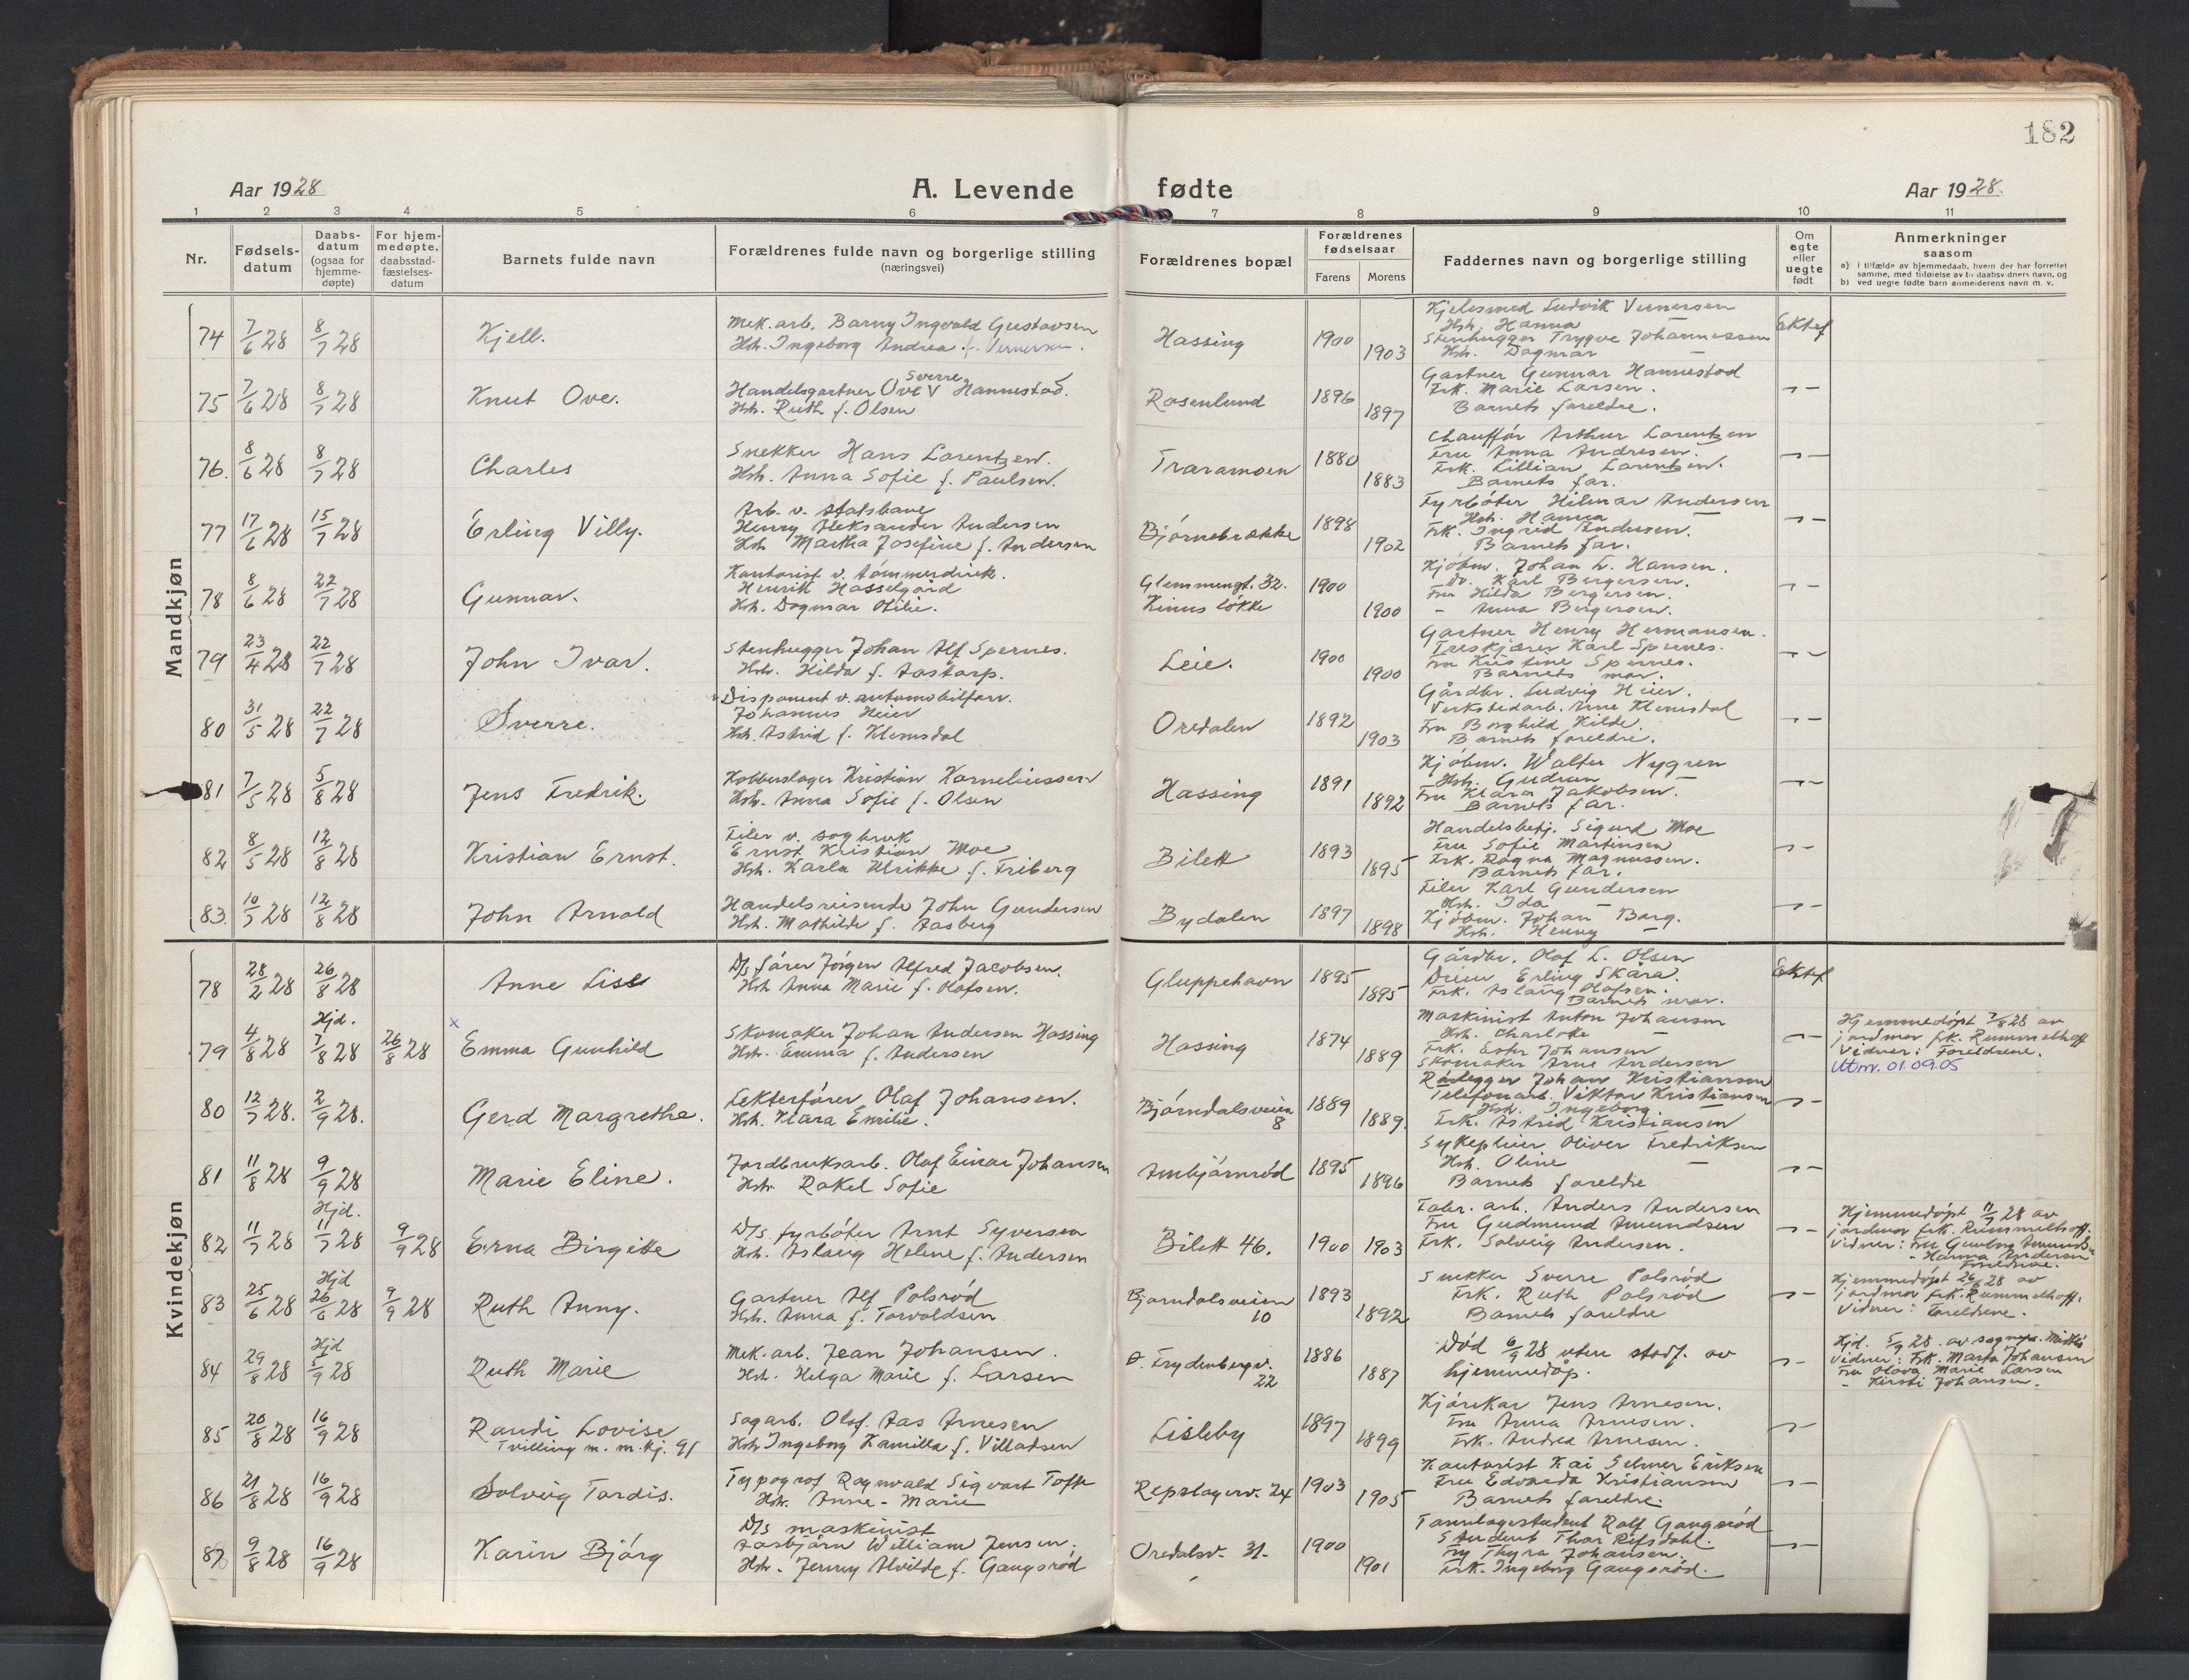 182
Aar 1928
A. Levende fødte
Aar 1928.
1 2 3 4 5 6 7 8 9 10 11
Nr.
Fødsels-
datum
Daabs-
datum
(ogsaa for
hjemme-
døpte)
For hjem-
medøpte,
daabsstad-
fæstelses-
datum
Barnets fulde navn
Forældrenes fulde navn og borgerlige stilling
(næringsvei)
Forældrenes bopæl
Forældrenes
fødselsaar
Farens Morens
Faddernes navn og borgerlige stilling
Om
egte
eller
uegte
født
Anmerkninger
saasom
a) i tilfælde av hjemmedaab, hvem der har forrettet
samme, med tilføielse av to daabsvidners navn, og
b) ved uegte fødte barn anmelderens navn m. v.
Mandkjøn
74 7/6 28 8/7 28 Kjell.
Mek. arb. Barny Ingvald Gustavsen
Hst. Ingeborg Andrea f. Vernersen.
Hassing 1900 1903
Kjelesmed Ludvik Vernersen
Hst. Hanna
Stenhugger Trygve Johannessen
Hst. Dagmar
Ektef
75 7/6 28 8/7 28 Knut Ove.
Sverre
Handelsgartner Ove V Hannestad.
Hst. Ruth f. Olsen
Rosenlund 1896 1897
Gartner Gunnar Hannestad
Frk. Marie Larsen.
Barnets foreldre.
76. 8/6 28 8/7 28 Charles
Snekker Hans Lorentzen.
Hst. Anna Sofie f. Paulsen.
Traramoen 1880 1883
Chauffør Arthur Lorentzen
Fru Anna Andresen.
Frk. Lillian Lorentzen.
Barnets far.
77 17/6 28 15/7 28 Erling Villy.
Arb. v. Statsbane
Henry Aleksander Andersen
Hst Martha Josefine f. Andersen
Bjørnebrække 1898 1902
Fyrbøter Hilmar Andersen
Hst. Hanna
Frk. Ingrid Andersen.
Barnets far.
78 8/6 28 22/7 28 Gunnar.
Kontorist v. tømmerdirek.
Henrik Hasselgård
Hst. Dagmar Otilie.
Glemmengt. 32.
Kinns løkke
1900 1900
Kjøbm. Johan L. Hansen.
Do. Karl Bergersen.
Fru Hilda Bergersen.
- Anna Bergersen.
79 23/4 28 22/7 28 John Ivar.
Stenhugger Johan Alf Spernes.
Hst. Hilda f. Aastorp.
Leie. 1900 1900
Gartner Henry Hermansen.
Treskjærer Karl Spernes.
Fru Kristine Spernes.
Barnets mor.
80 31/5 28 22/7 28 Sverre.
Disponent v. automobilforr.
Johannes Heier
Hst. Astrid f. Klemsdal
Oredalen 1892 1903
Gårdbr. Ludvig Heier.
Verkstedarb. Arne Klemsdal
Fru Borghild Kilde.
Barnets foreldre.
81 7/5 28 5/8 28 Jens Fredrik.
Kobberslager Kristian Korneliussen
Hst. Anna Sofie f. Olsen
Hassing 1891 1892
Kjøbm. Walter Nygren
Hst. Gudrun
Fru Klara Jakobsen.
Barnets far.
82 8/5 28 12/8 28 Kristian Ernst.
Filer v. sagbruk
Ernst Kristian Moe
Hst. Karla Ulrikke f. Friberg
Bilett 1893 1895
Handelsbetj. Sigurd Moe
Fru Sofie Martinsen
Frk. Ragna Magnussen.
Barnets far.
83. 10/7 28 12/8 28 John Arnold
Handelsreisende John Gundersen
Hst. Mathilde f. Aasberg
Bydalen 1897 1898
Filer Karl Gundersen
Hst. Ida
Kjøbm. Johan Berg.
Hst. Henny
Kvindekjøn
78 28/2 28 26/8 28 Anne Lise
D/s fører Jørgen Alfred Jacobsen.
Hst Anna Marie f. Olafsen.
Gluppehavn 1895 1895
Gårdbr. Olaf L. Olsen
Dreier Erling Skåra.
Frk. Aslaug Olafsen.
Barnets mor.
Ektef
79 4/8 28 Hjd. 7/8 28 26/8 28 x Emma Gunhild
Skomaker Johan Andersen Hassing
Hst. Emma f. Andersen
Hassing 1874 1889
Maskinist Anton Johansen
Hst. Charlotte
Frk. Ester Johansen
Skomaker Arne Andersen
Hjemmedøpt 7/8 28 av
jordmor frk. Rummelhoff
Vidner: Foreldrene.
Utm. 01.09.05
80 12/7 28. 2/9 28. Gerd Margrethe.
Lekterfører Olaf Johansen.
Hst. Klara Emilie.
Bjørndalsveien
8
1889 1889.
Rørlegger Johan Kristiansen
Telefonarb. Viktor Kristiansen
Hst. Ingeborg
Frk. Astrid Kristiansen
81 11/8 28 9/9 28 Marie Eline.
Jordbruksarb. Olaf Einar Johansen
Hst. Rakel Sofie
Ambjørnrød 1895 1896
Sykepleier Oliver Fredriksen
Hst. Oline
Barnets foreldre
82 11/7 28 Hjd. 11/7 28 9/9 28 Erna Birgitte
D/s. fyrbøter Arnt Syversen
Hst. Aslaug Helene f. Andersen
Bilett 46. 1900 1903
Fabr. arb. Anders Andersen
Fru Gudmund Amundsen
Frk. Solveig Andersen.
Hjemmedøpt 11/7 28 av
jordmor frk. Rummelhoff.
Vidner: Fru Gunborg Amunds.
- Hanna Andersen
Foreldrene.
83 25/6 28 Hjd 26/6 28 9/9 28 Ruth Anny.
Gartner Alf Polsrød
Hst. Anna f. Torvaldsen
Bjørndalsveien
10
1893 1892
Snekker Sverre Polsrød
Frk. Ruth Polsrød
Barnets foreldre
Hjemmedøpt 26/6 28 av
jordmor frk. Rummelhoff.
Vidner: Foreldrene.
84 29/8 28 Hjd 5/9 28 Ruth Marie
Mek. arb. Jean Johansen.
Hst. Helga Marie f. Larsen
Ø. Frydenbergv.
22
1886 1887
Død 6/9 28 uten stadf. av
hjemmedåp.
Hjd. 5/9 28. av sognepr.
Vidner: Frk. Marta Johansen
Fru Olava Marie Larsen
- Kirsti Johansen.
85 20/8 28 16/9 28 Randi Lovise
Tvilling m. m.kj. 91
Sagarb. Olaf Aas Arnesen
Hst. Ingeborg Kamilla f. Villadsen
Lisleby 1897 1899
Kjørekar Jens Arnesen.
Fru Anna Arnesen.
Frk. Andrea Arnesen.
86 21/8 28 16/9 28 Solveig Tordis.
Typograf Ragnvald Sigvart Tofte
Hst. Anne-Marie
Repslagerv. 24 1903 1905
Kontorist Kai Selmer Eriksen
Fru Edvarda Kristiansen
Barnets foreldre.
87 9/8 28 16/9 28 Karin Bjørg
D/s maskinist
Aasbjørn William Jensen.
Hst. Jenny Alvilde f. Gaugsrød
Oredalsv. 31. 1900 1901
Tannlægestudent Rolf Gaugsrød
Student Thor Refsdahl.
Frk. Thyra Johansen.
Frk. Ingeborg Gaugsrød.